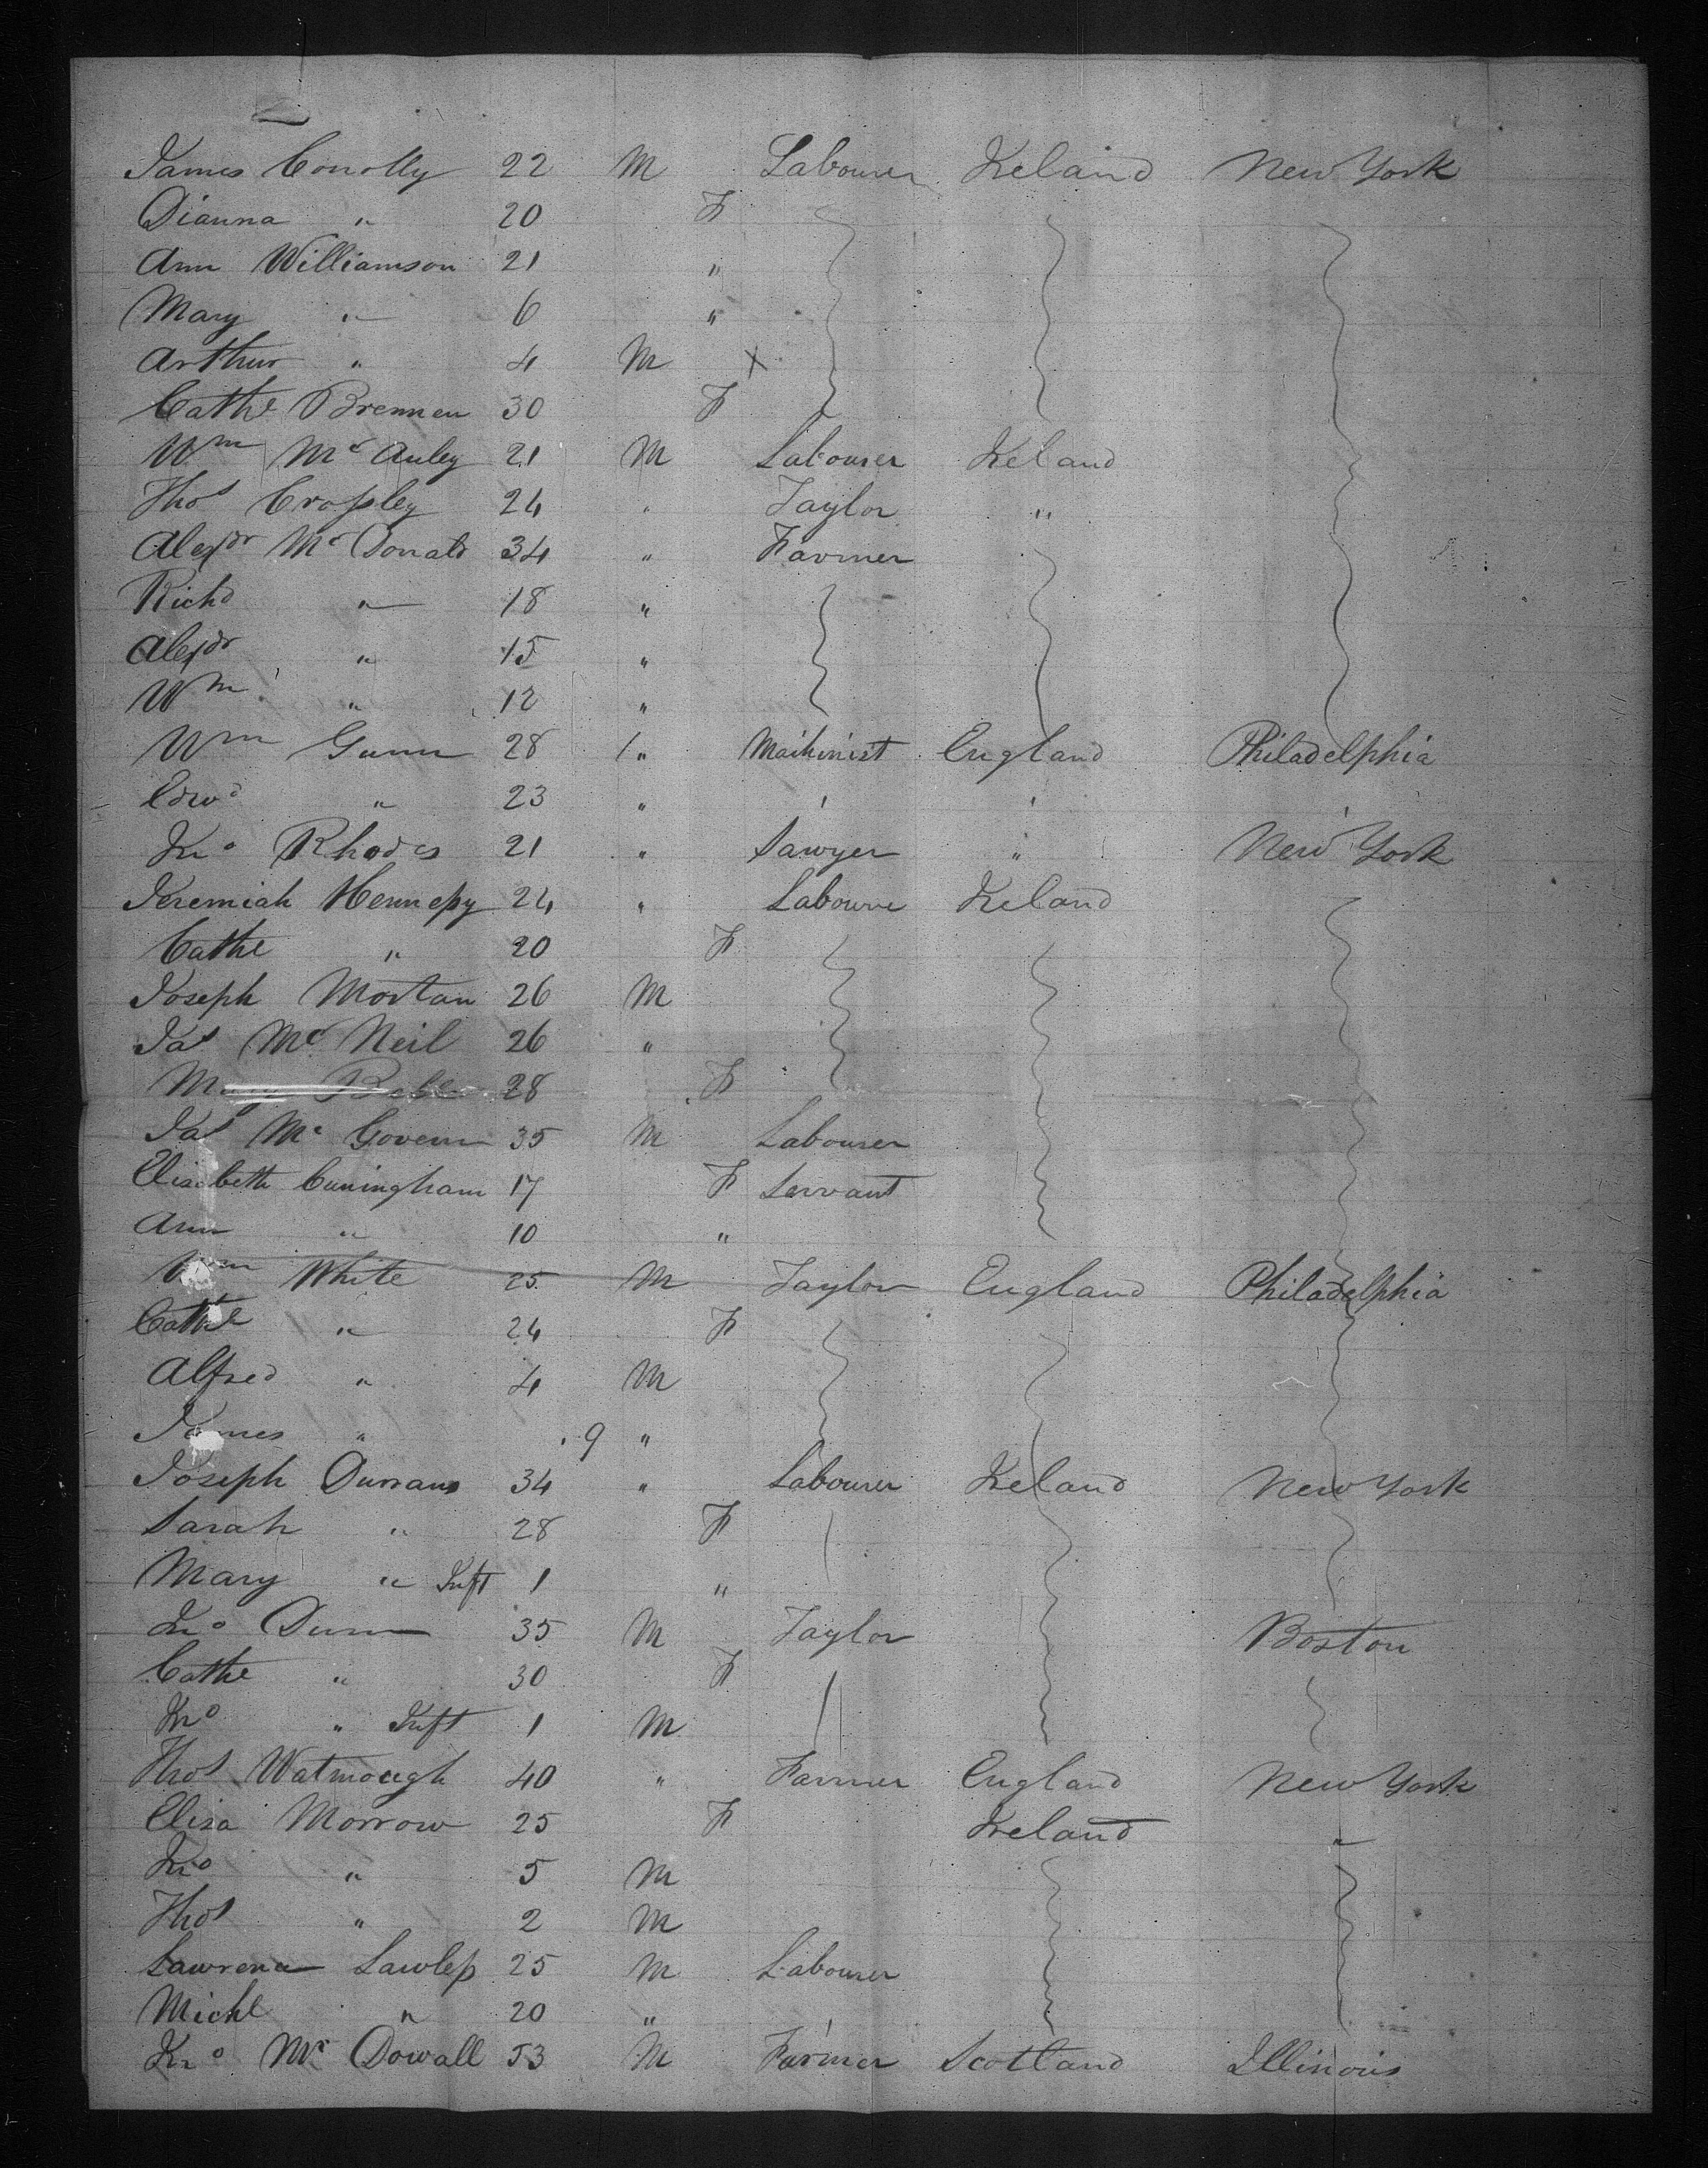 James Conolly 22 M Labourer Ireland New York
Dianna " 20 F
Ann Williamson 21 "
Mary " 6 "
Arthur " 4 M X
Cathe Brennen 30 F
Wm Mc Auley 21 M Labourer Ireland
Thos Crossley 24 " Taylor "
Alexdr Mc Donald 34 " Farmer
Richd " 18 "
Alexdr " 15 "
Wm " 12 "
Wm Gunn 28 " Machinist England Philadelphia
Edwd " 23 " ' '
Jno Rhodes 21 " Sawyer " New York
Jeremiah Hennessy 24 " Laboure Ireland
Cathe " 20 F
Joseph Mortan 26 M
Jas Mc Neil 26 "
28 F
Jas Mc Govern 35 M Labourer
Elisabeth Cuningham 17 F Servant
Ann " 10 "
Wm White 25 M Taylor England Philadelphia
Cathe " 24 F
Alfred " 4 M
James " 9 "
Joseph Durrans 34 " Labourer Ireland New York
Sarah " 28 F
Mary " Inft 1 "
Jno Dunn 35 M Taylor Boston
Cathe " 30 F
Jno " Inft 1 M
Thos Watmough 40 " Farmer England New York
Elisa Morrow 25 F Ireland "
Jno " 5 M
Thos " 2 M
Lawrence Lawless 25 M Labourer
Michl " 20 " '
Jno Mc Dowall 53 M Farmer Scotland Illinois